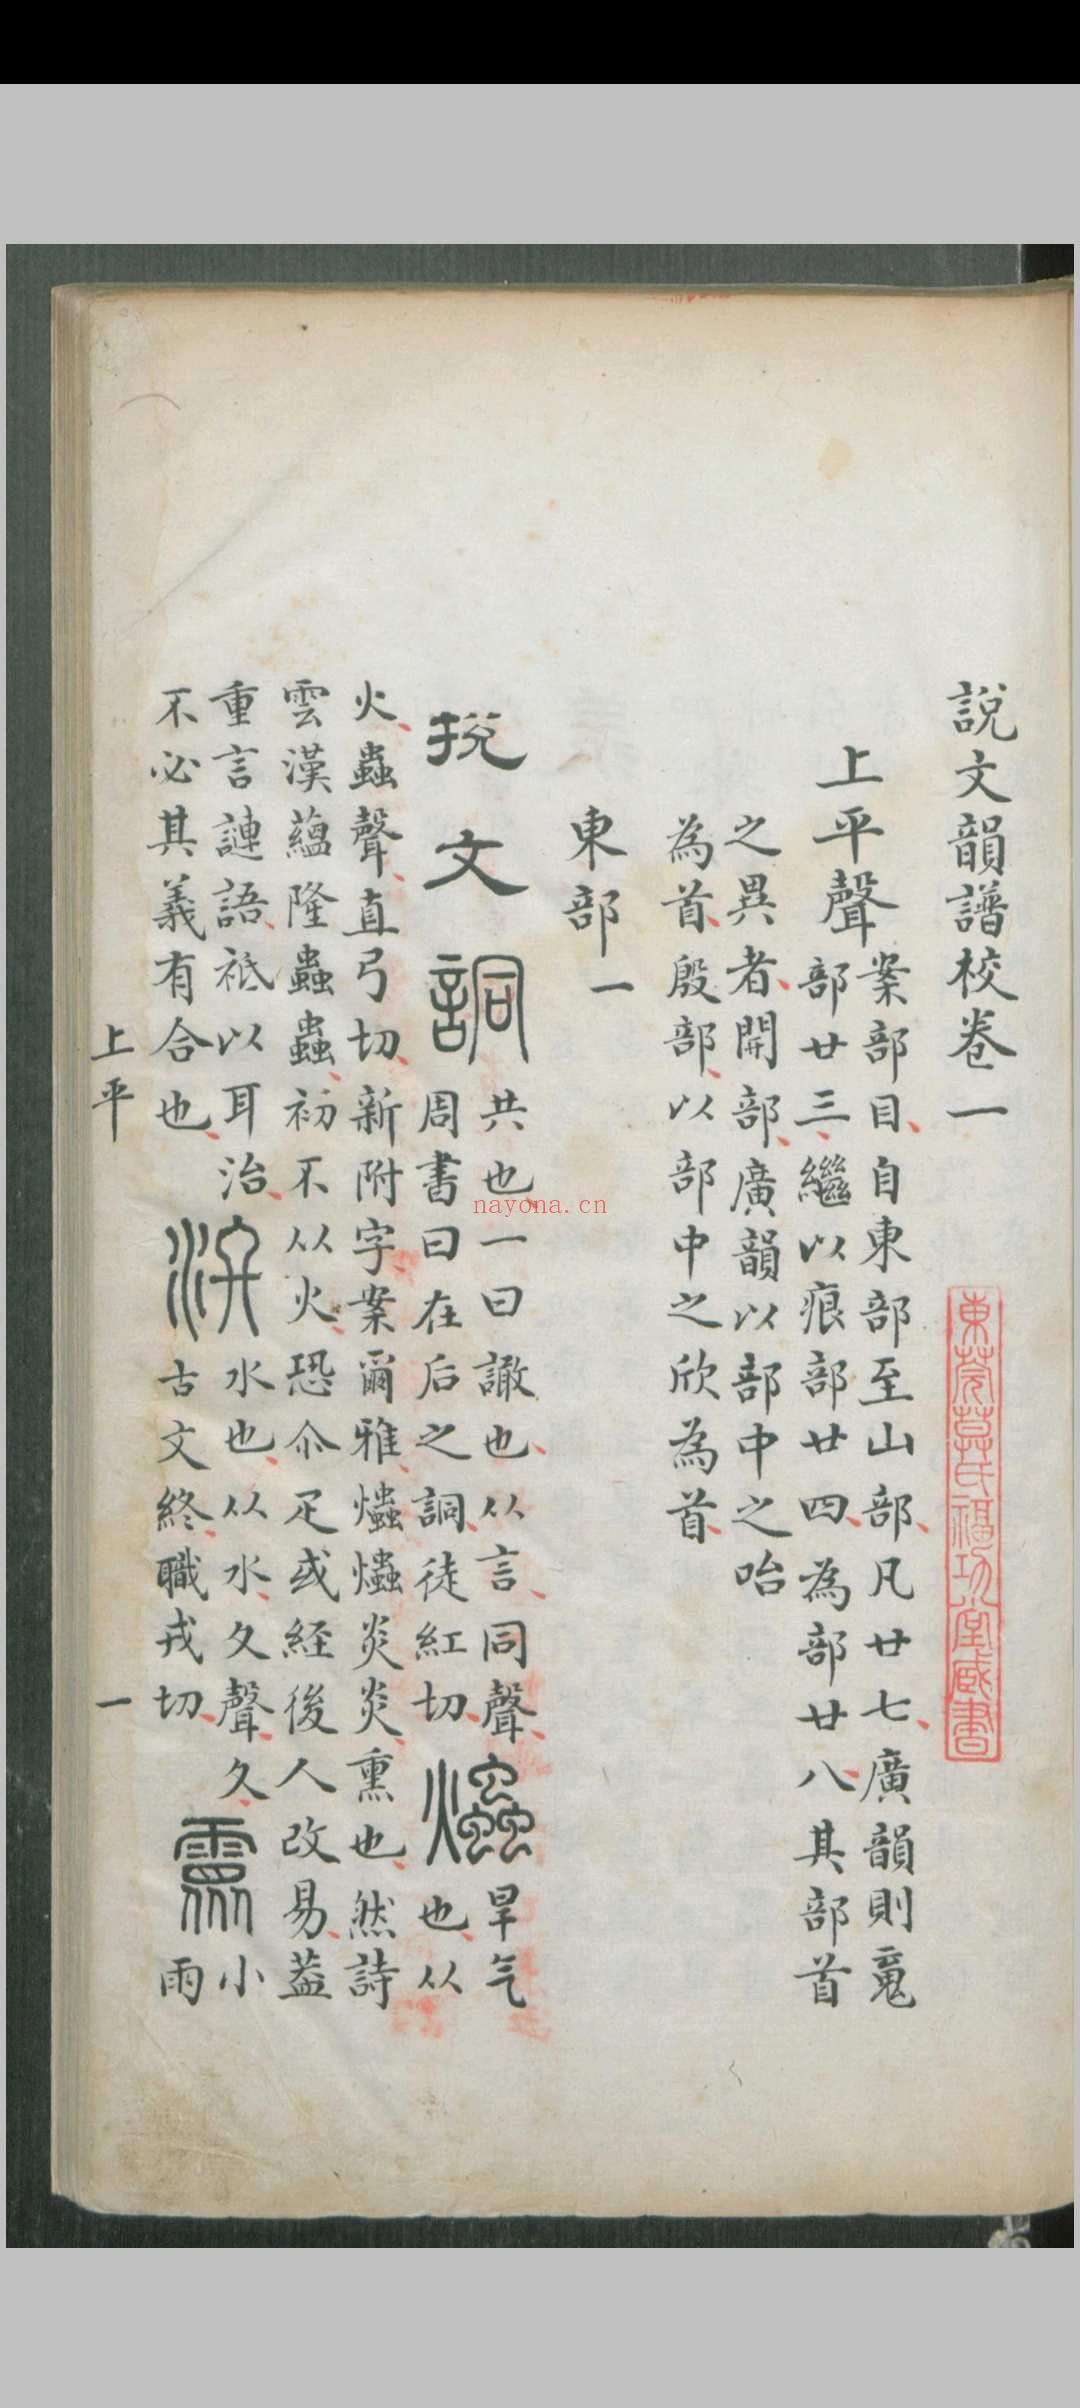 說文韻譜校卷一
上平聲
案部目自東部至山部凡廿七廣韻則䰟
部廿三繼以痕部廿四為部廿八其部首
之異者開部廣韻以部中之咍
為首殷部以部中之欣為首
東部一
捝文
詷
共也一曰譀也从言同聲
周書曰在后之詷徒紅切
爞
旱气
也从
火蟲聲直弓切新附字案爾雅爞爞炎炎熏也然詩
雲漢蘊隆蟲蟲初不从火恐尒疋或經後人改易葢
重言謰語祗以耳治
不必其義有合也
泈
水也从水夂聲夂
古文終職戎切
霥
小
雨
上平
一
東莞莫氏福功堂藏書
nayona.cn